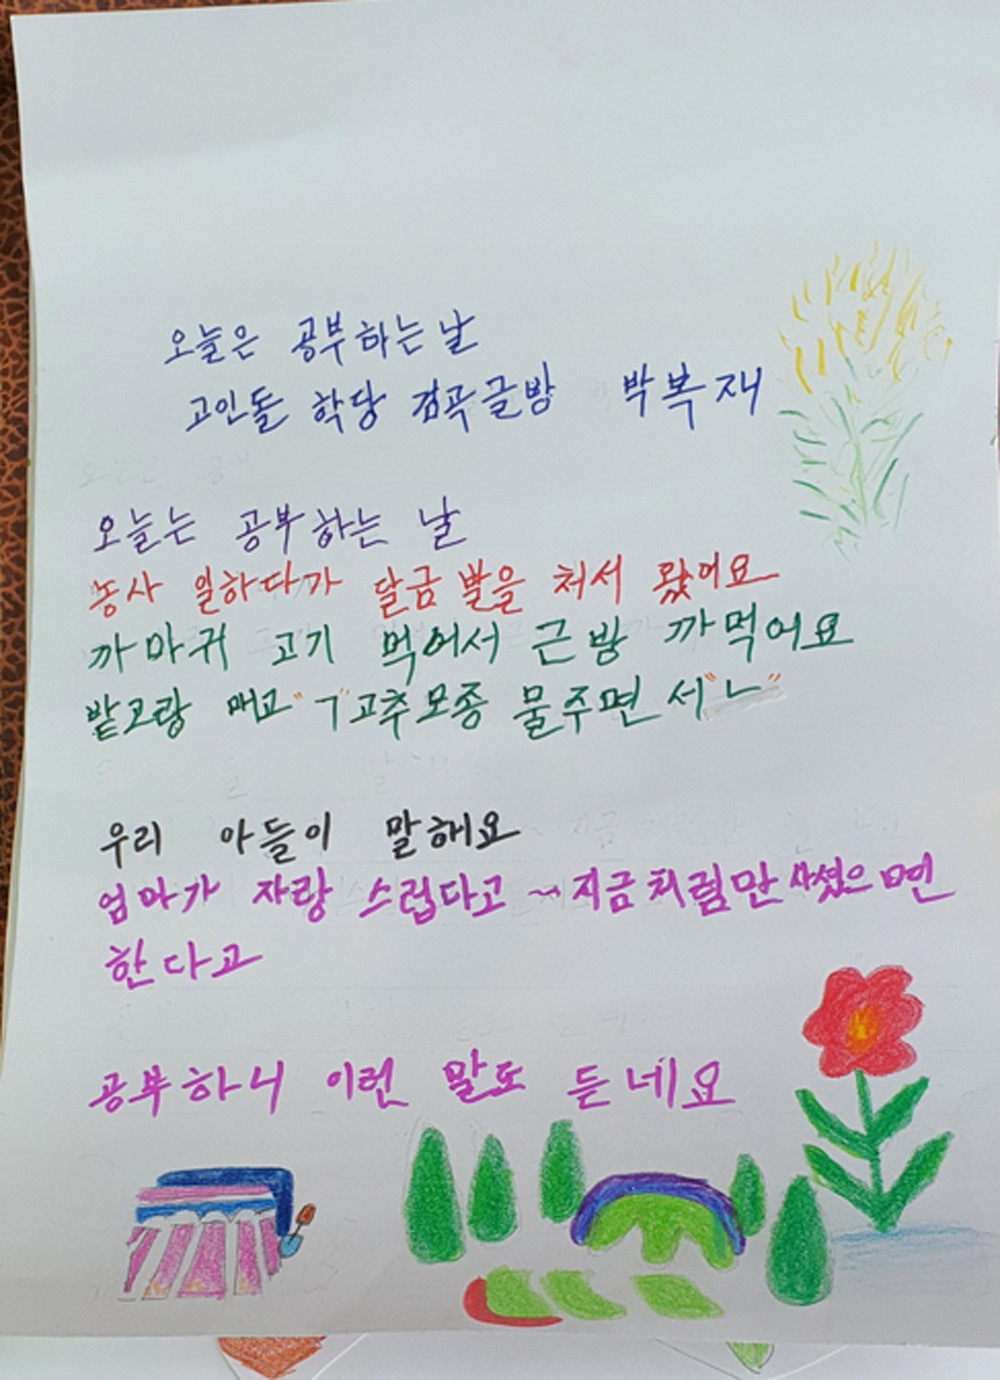 오늘은 공부하는날
고인돌 학당 검곡글방 박복재
오늘는 공부하는 날
농사 일하다가 달금뿔을 처서 왔어요
까마귀 고기 먹어서 근방 까먹어요
밭고랑 매고 "ㄱ" 고추모종 물주면서 "ㄴ"
우리 아들이 말해요
엄마가 자랑 스럽다고 ~ 지금처럼만 사셨으면
한다고
공부하니 이런 말도 듣네요